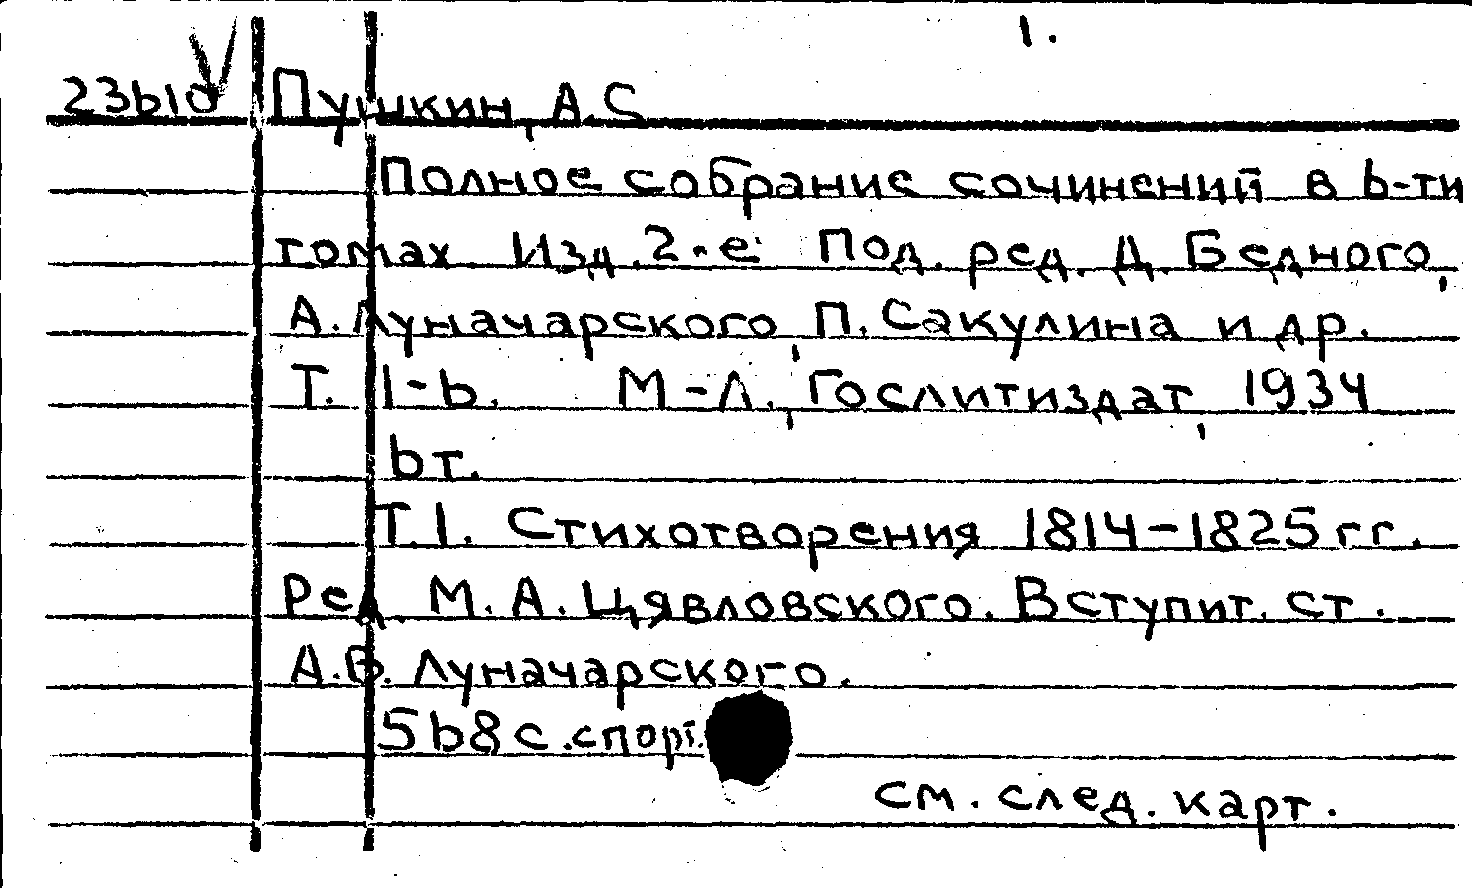 1.
23610 Пушкин, А.С
Полное собрание сочинений в 6-ти
томах Изд. 2-е Под. ред. Д. Бедного,
А. Луначарского, П. Сакулина и др.
Т. 1-6. М-Л., Гослитиздат, 1934
6т.
Т.1. Стихотворения 1814-1825 гг.
Ред. М.А. Цявловского. Вступит. ст.
А.В. Луначарского.
568 с.
см. след. карт.